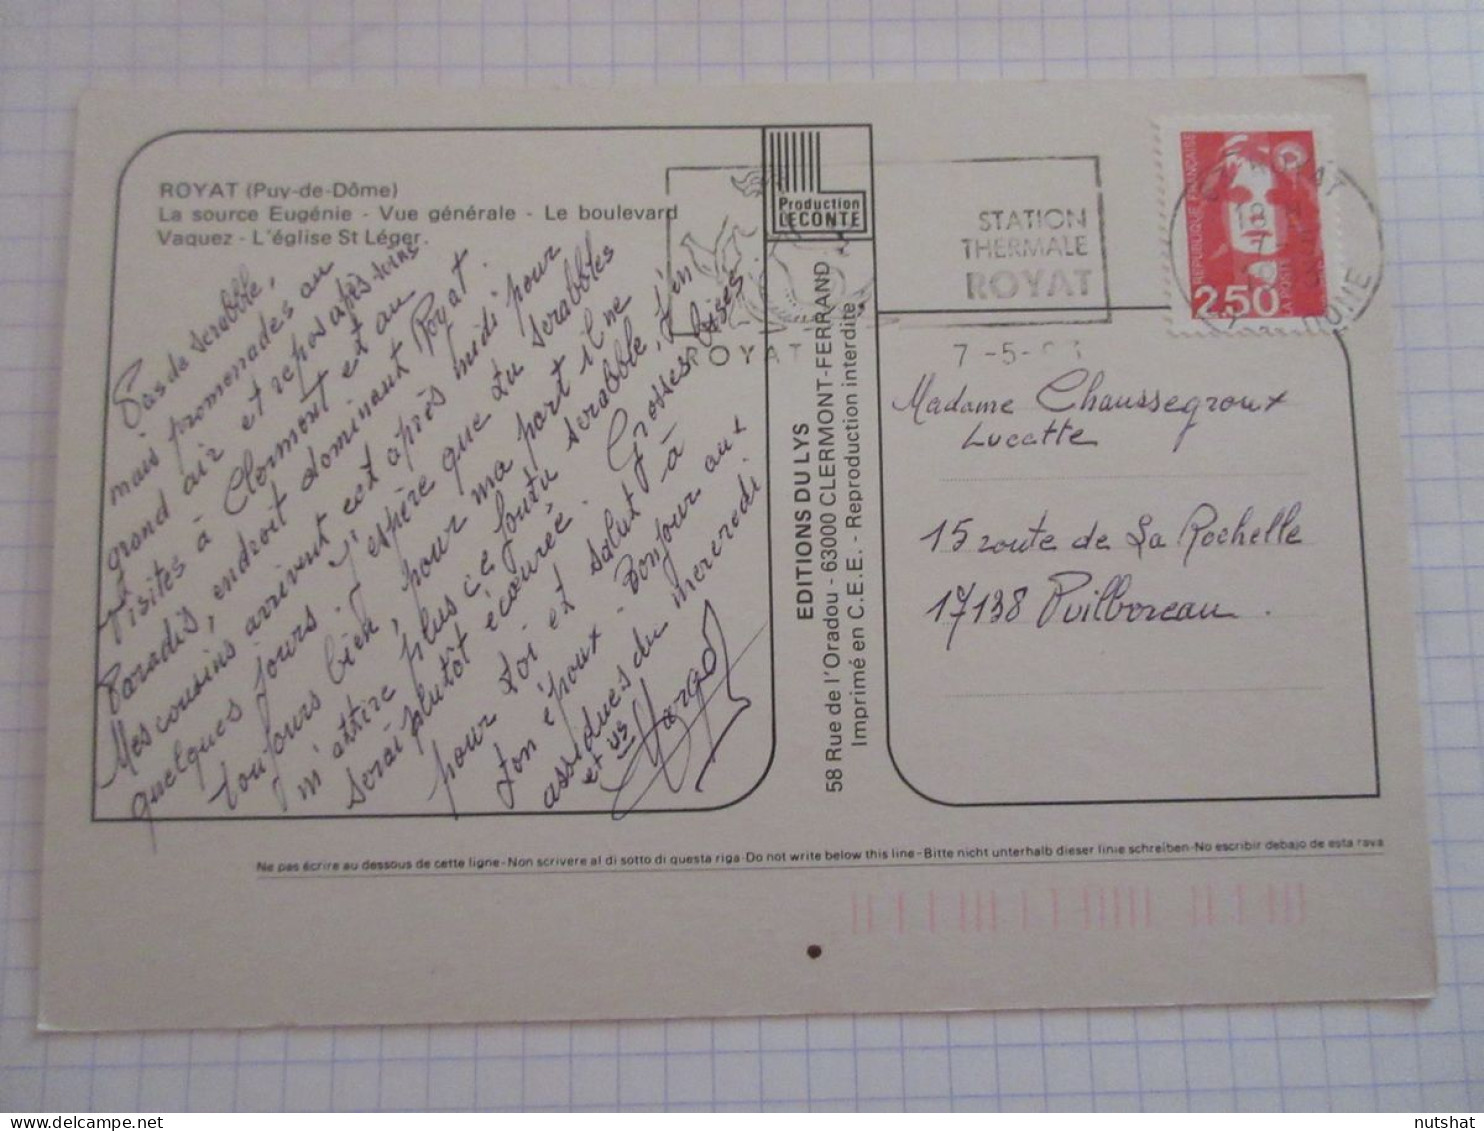 ROYAT (Puy-de-Dôme)
La source Eugénie - Vue générale - Le boulevard
Vaquez - L'église St Léger.
Pas de scrabble,
mais promenades au
grand air et repos après soins
Visites à Clermont et au
Paradis, endroit dominant Royat.
Mes cousins arrivent cet après midi pour
quelques jours. J'espère que tu scrabbles
toujours bien, pour ma part il ne
m'attire plus ce foutu scrabble, j'en
serai plutôt écœurée. Grosses bises
pour toi et salut à
ton époux - Bonjour aux
assidues du mercredi
et us
Margot
Production
LECONTE
EDITIONS DU LYS
58 Rue de l'Oradou - 63000 CLERMONT-FERRAND
Imprimé en C.E.E. - Reproduction interdite
STATION
THERMALE
ROYAT
ROYAT
7-5-
RÉPUBLIQUE FRANÇAISE
2,50
LA POSTE
Madame Chaussegroux
Lucette
15 route de La Rochelle
17138 Puilboreau.
Ne pas écrire au dessous de cette ligne-Non scrivere al di sotto di questa riga-Do not write below this line-Bitte nicht unterhalb dieser linie schreiben-No escribir debajo de esta rava
delcampe.net
nutshat